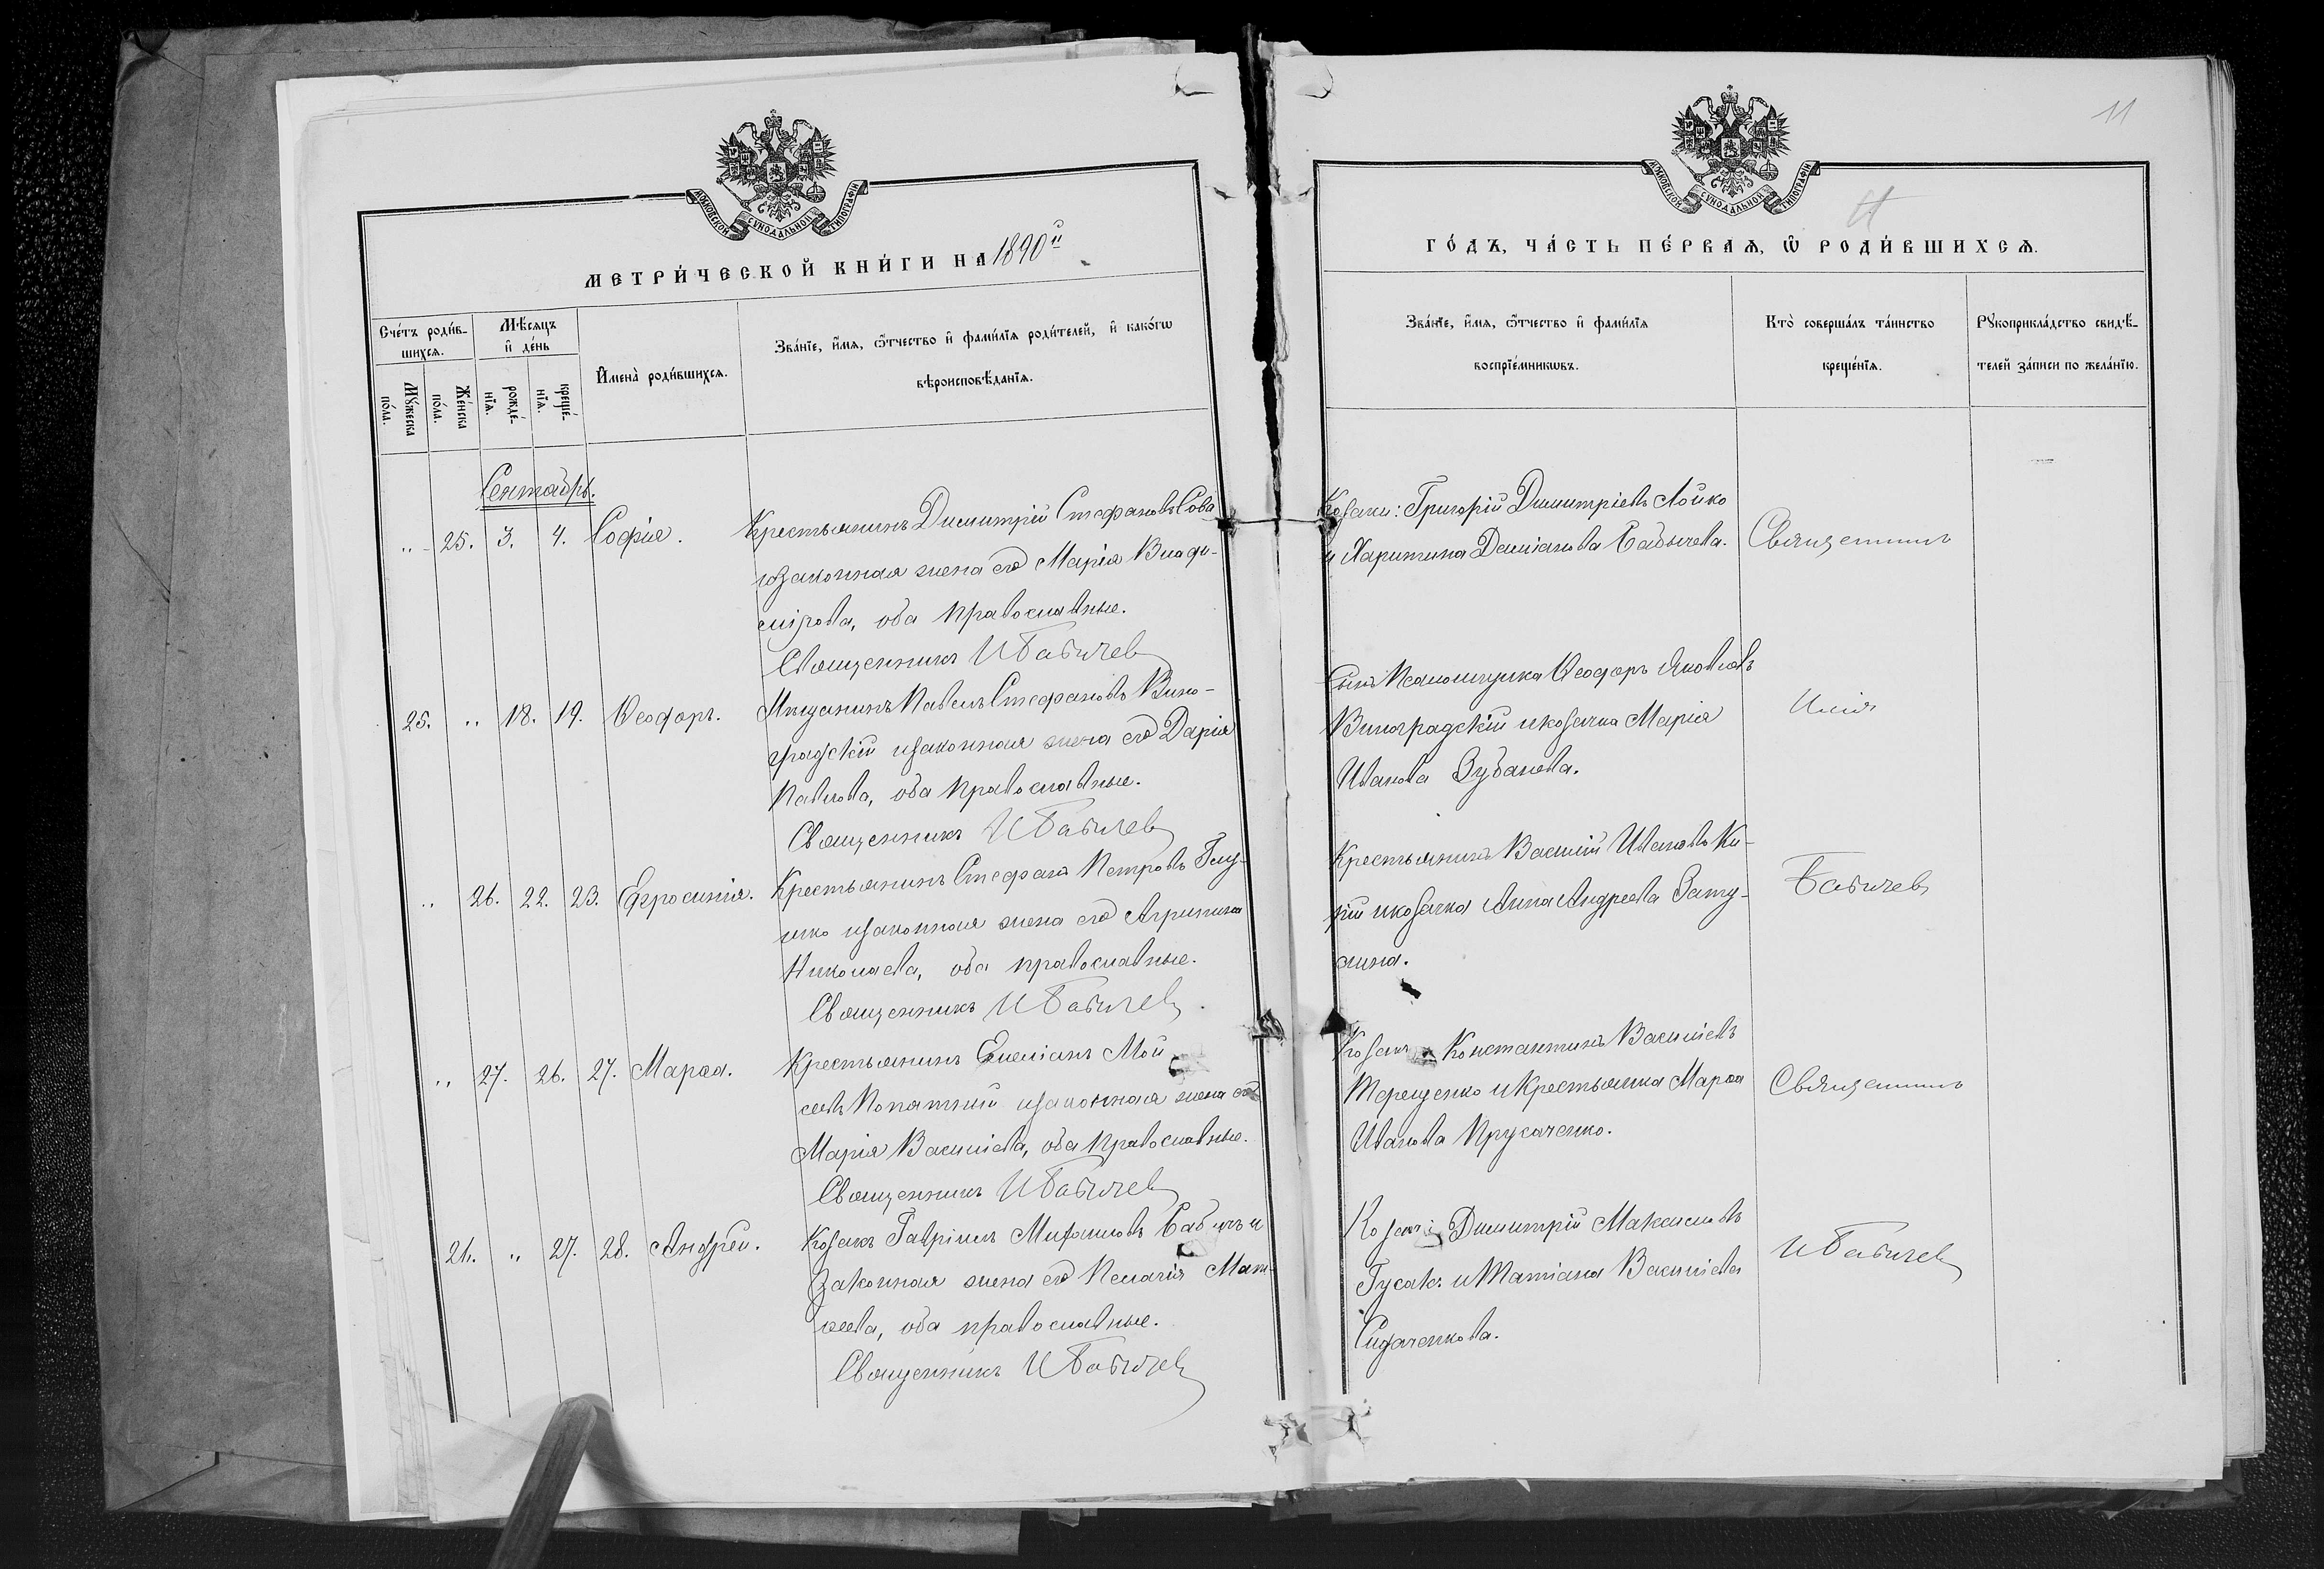 МОСКОВСКОЙ СУНОДАЛЬНОЙ ТИПОГРАФІИ
МЕТРИ́ЧЕСКОЙ КНИ́ГИ НА 1890й
Сче́тъ роди́в-
шихсѧ.
Мѣ́сѧцъ
и҆ де́нь
И҆мена̀ роди́вшихсѧ.
Зва́нїе, и҆́мѧ, ѻ҆́тчество и҆ фами́лїѧ роди́телей, и҆ како́гѡ
вѣроисповѣ́данїѧ.
Мꙋ́жеска
по́ла.
Же́нска
по́ла.
рожде́-
нїѧ.
креще́-
нїѧ.
Сентябрь.
„ 25. 3. 4. Софія.
Крестьянинъ Димитрій Стефановъ Сова
и законная жена его Марія Влади-
мірова, оба православные.
Священникъ И Бабичев
25. „ 18. 19. Ѳеодоръ.
Мѣщанинъ Павелъ Стефановъ Вино-
градскій и законная жена его Дарія
Павлова, оба православные.
Священникъ И Бабичев
„ 26. 22. 23. Ефросинія.
Крестьянинъ Стефанъ Петровъ
и законная жена его Агрипина
Николаева, оба православные.
Священникъ И Бабичев
„ 27. 26. 27. Марѳа.
Крестьянинъ Емеліанъ Мой
сеевъ и законная жена его
Марія Василіева, оба православные.
Священникъ И Бабичев
26. „ 27. 28. Андрей.
Козакъ Гавріилъ Михаиловъ Бабичъ и
законная жена его Пелагія Мат-
ѳеева, оба православные.
Священникъ И Бабичев
11
МОСКОВСКОЙ СУНОДАЛЬНОЙ ТИПОГРАФІИ
ГО́ДЪ, ЧА́СТЬ ПЕ́РВАѦ, Ѡ҆ РОДИ́ВШИХСѦ.
Зва́нїе, и҆́мѧ, ѻ҆́тчество и҆ фами́лїѧ
воспрїе́мникѡвъ.
Кто̀ соверша́лъ та́инство
креще́нїѧ.
Рꙋкоприкла́дство свидѣ́-
телей за́писи по жела́нїю.
Козаки: Григорій Димитріевъ Лойко
и Харитина Даміанова Бабичева.
Священникъ
Сынъ Псаломщика Ѳеодоръ Яковлевъ
Виноградскій и козачка Марія
Иванова Зубанева.
Илія
Крестьянинъ Василій Ивановъ Ки-
рій и козачка Анна Андреева Зату-
лина.
Бабичев
Козакъ Константинъ Василіевъ
Терещенко и Крестьянка Марѳа
Иванова Прусаченко.
Священникъ
Козаки: Димитрій Максимовъ
Гусакъ и Татіана Василіева
Сидаченкова.
И Бабичев